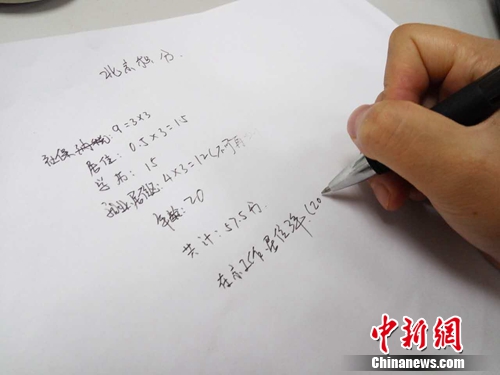 北京积分.
社保纳税: 9=3×3
居住: 0.5×3=1.5
学历: 15
就业居住: 4×3=12(
年龄: 20
共计: 57.5分.
在京工作居住3年. (20
中新网
Chinanews.com